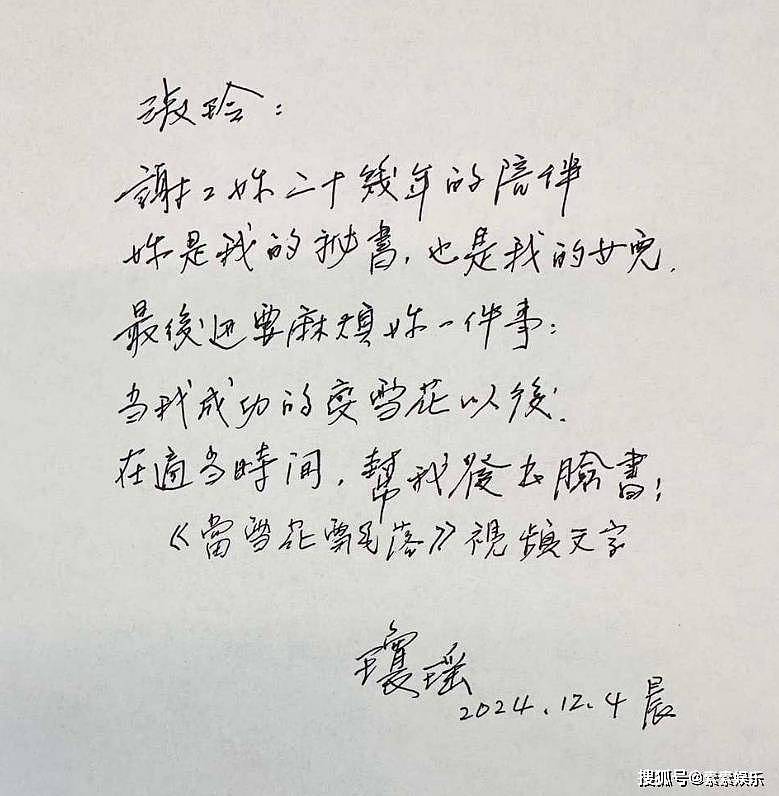 淑玲：
謝謝妳二十幾年的陪伴
妳是我的秘書，也是我的女兒．
最後还要麻煩妳一件事：
当我成功的变雪花以後．
在適当時间，幫我發出臉書：
《當雪花飄落》視頻文字
瓊瑤
2024.12.4 晨
搜狐号@素素娱乐